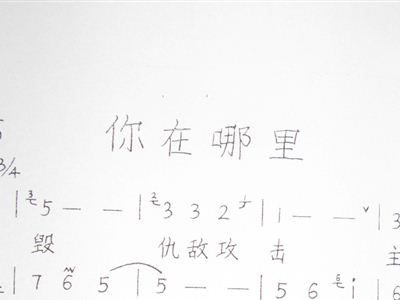 你在哪里
3/4
| 5 — — | 3 3 2 | i — — ˅ | 3
毁 仇敌攻击 主
| 7 6 5 | 5 — — | 5 6 i | 6